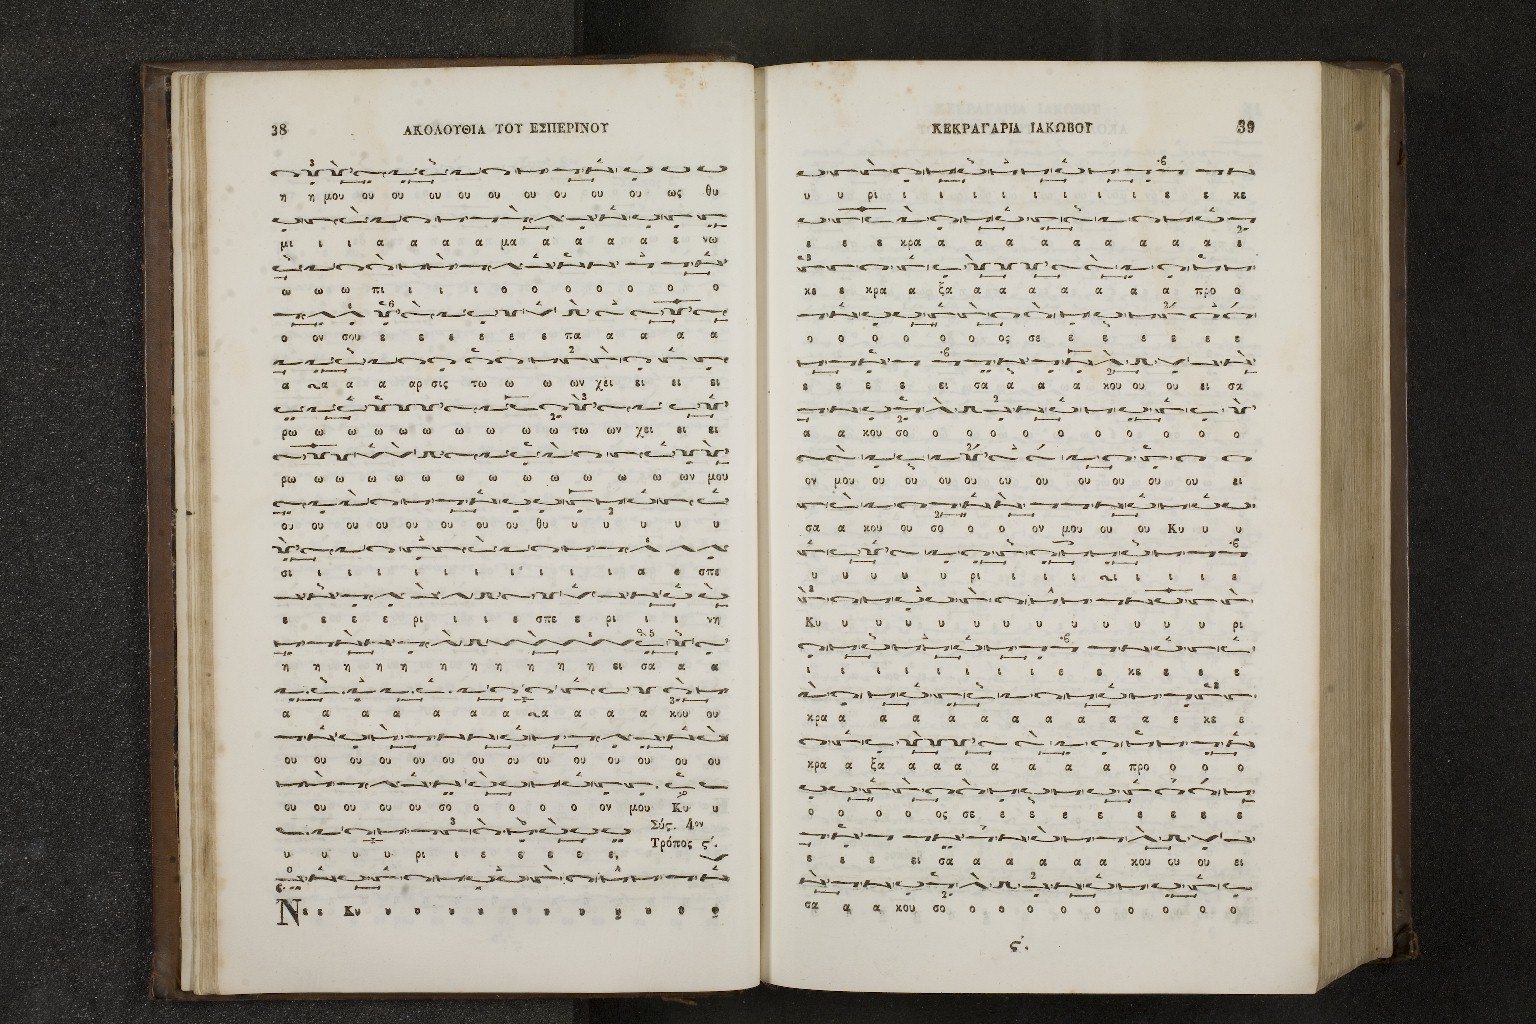 38
ΑΚΟΛΟΥΘΙΑ ΤΟΥ ΕΣΠΕΡΙΝΟΥ
η η μου ου ου ου ου ου ου ου ου ου ως θυ
μι ι ι α α α α μα α α α α ε νω
ω ω ω πι ι ι ι ο ο ο ο ο ο ο
ο ον σου ε ε ε ε ε ε ε πα α α α α
α α α α αρ σις τω ω ω ων χει ει ει ει
ρω ω ω ω ω ω ω ω ω ω τω ων χει ει ει
ρω ω ω ω ω ω ω ω ω ω ω ω ω ων μου
ου ου ου ου ου ου ου ου ου θυ υ υ υ υ υ
σι ι ι ι ι ι ι ι ι ι ι α ε σπε
ε ε ε ε ρι ι ι ε σπε ε ρι ι ι νη
η η η η η η η η η η η ει σα α α
α α α α α α α α α α α α κου ου
ου ου ου ου ου ου ου ου ου ου ου ου ου ου
ου ου ου ου ου σο ο ο ο ο ον μου Κυ υ
Σύς. 4ον
Τρόπος ς΄.
υ υ υ υ ρι ι ε ε ε ε ε,
Νε ε Κυ υ υ υ υ υ υ υ υ υ υ υ
ΚΕΚΡΑΓΑΡΙΑ ΙΑΚΩΒΟΥ
39
υ υ ρι ι ι ι ι ι ι ι ι ε ε κε
ε ε ε κρα α α α α α α α α α ε
κε ε κρα α ξα α α α α α α α προ ο
ο ο ο ο ο ο ος σε ε ε ε ε ε ε
ε ε ε ε ει σα α α α κου ου ου ει σα
α α κου σο ο ο ο ο ο ο ο ο ο ο
ον μου ου ου ου ου ου ου ου ου ου ου ει
σα α κου ου σο ο ο ον μου ου ου Κυ υ υ
υ υ υ υ υ ρι ι ι ι ι ι ι ι ε
Κυ υ υ υ υ υ υ υ υ υ υ υ ρι
ι ι ι ι ι ι ι ε ε κε ε ε ε
κρα α α α α α α α α α α ε κε ε
κρα α ξα α α α α α α α προ ο ο ο
ο ο ο ο ος σε ε ε ε ε ε ε ε ε
ε ε ε ει σα α α α α α κου ου ου ει
σα α α κου σο ο ο ο ο ο ο ο ο ο
ς΄.